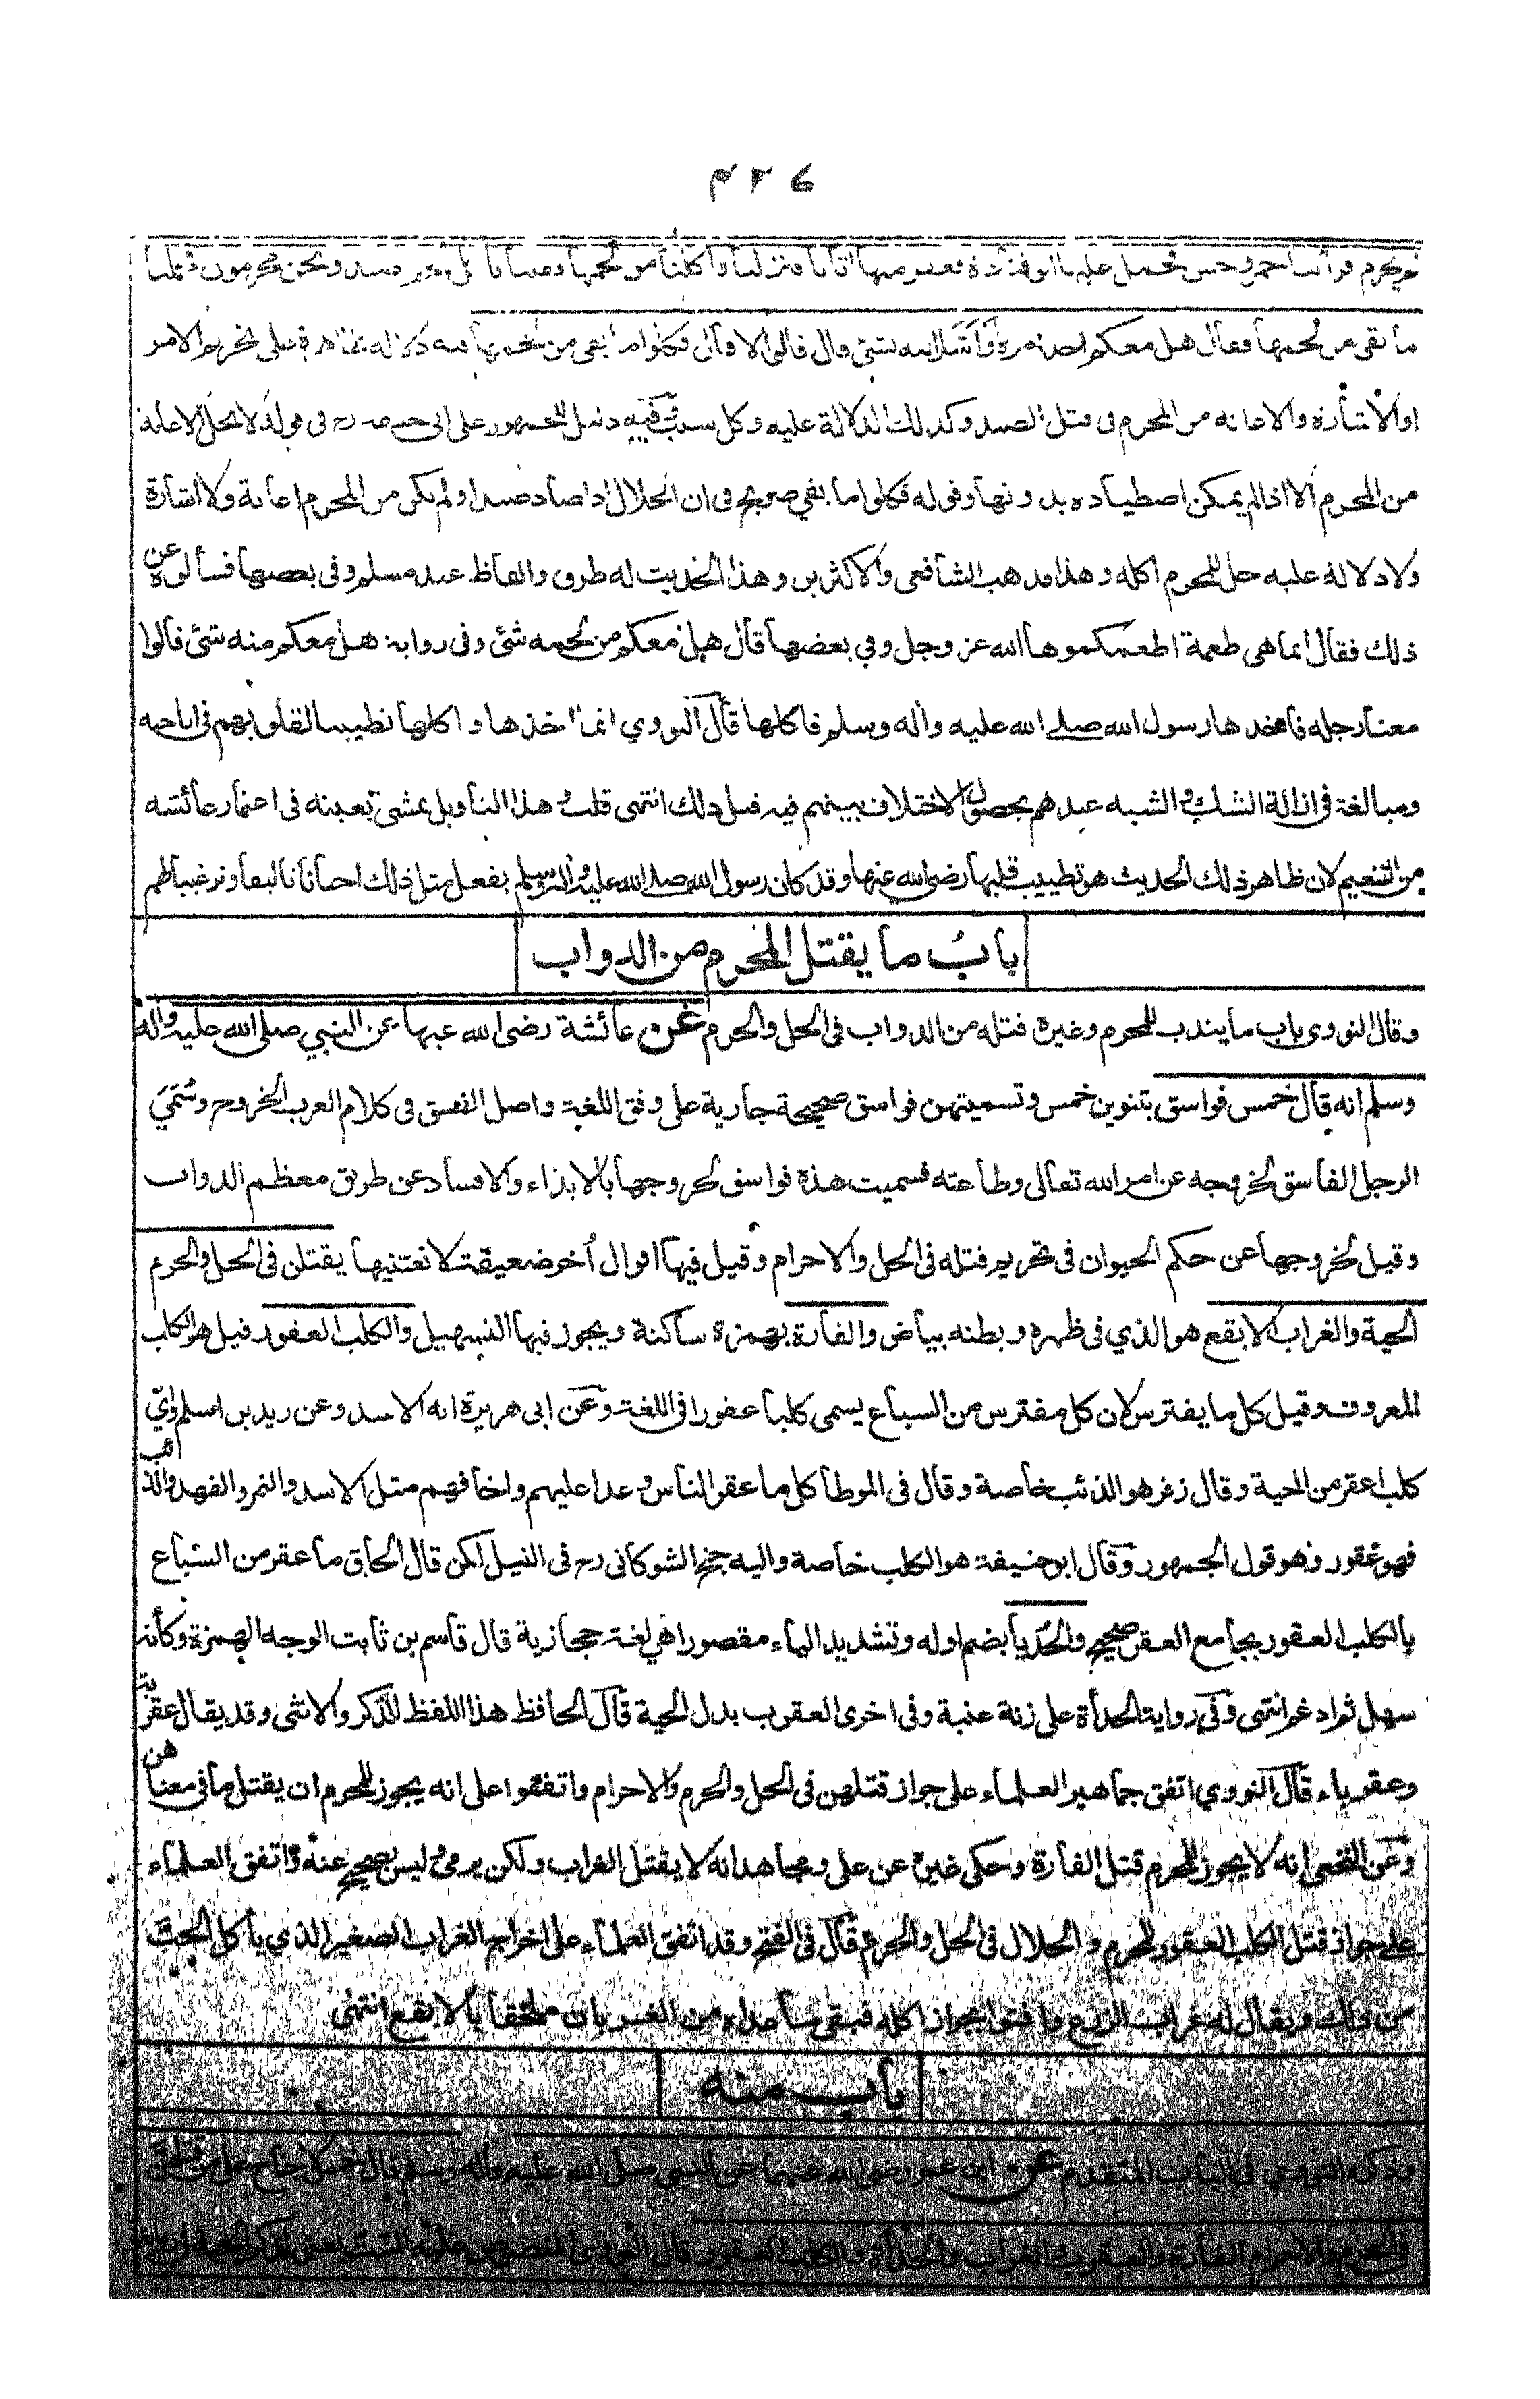 ٤٢٧
لم يحرم فرأينا حمر وحش فحمل عليها ابو قتادة فعقر منها اتانا فنزلنا فأكلنا من لحمها فقلنا نأكل لحم صيد ونحن محرمون فحملنا
ما بقي من لحمها فقال هل معكم احد امره أو أشار اليه بشيء قال قالوا لا قال فكلوا ما بقي من لحمها فيه دلالة ظاهرة على تحريم الامر
او الاشارة والاعانة من المحرم في قتل الصيد وكذلك الدلالة عليه وكل سبب وفيه دليل للجمهور على ابي حنيفة رح في قوله لا تحل الاعانة
من المحرم الا اذا لم يمكن اصطياده بدونها وقوله فكلوا ما بقي صريح في ان الحلال اذا صاد صيدا ولم يكن من المحرم اعانة ولا اشارة
ولا دلالة عليه حل للمحرم اكله وهذا مذهب الشافعي والاكثرين وهذا الحديث له طرق والفاظ عند مسلم وفي بعضها فسألوه عن
ذلك فقال انما هي طعمة اطعمكموها الله عز وجل وفي بعضها قال هل معكم من لحمه شئ وفي رواية هل معكم منه شئ قالوا
معنا رجله فاخذها رسول الله صلى الله عليه وأله وسلم فاكلها قال النووي انما اخذها واكلها تطييبا لقلوبهم في اباحته
ومبالغة في ازالة الشك والشبه عندهم بحصول الاختلاف بينهم فيه قبل ذلك انتهى قلت وهذا التأويل يمشي بعينه في اعتمار عائشة
من التنعيم لان ظاهر ذلك الحديث هو تطييب قلبها رضي الله عنها وقد كان رسول الله صلى الله عليه وأله وسلم يفعل مثل ذلك احيانا تأليفا وترغيبا لهم
باب ما يقتل المحرم من الدواب
وقال النووي باب ما يندب للمحرم وغيره قتله من الدواب في الحل والحرم عن عائشة رضي الله عنها عن النبي صلى الله عليه وأله
وسلم انه قال خمس فواسق بتنوين خمس وتسميتهن فواسق صحيحة جارية على وفق اللغة واصل الفسق في كلام العرب الخروج وسمي
الرجل الفاسق لخروجه عن امر الله تعالى وطاعته فسميت هذه فواسق لخروجها بالايذاء والافساد عن طريق معظم الدواب
وقيل لخروجها عن حكم الحيوان في تحريم قتله في الحل والاحرام وقيل فيها اقوال أخر ضعيفة لا نعتنيها يقتلن في الحل والحرم
الحية والغراب الابقع هو الذي في ظهره وبطنه بياض والفارة بهمزة ساكنة ويجوز فيها التسهيل والكلب العقور قيل هو الكلب
المعروف وقيل كل ما يفترس لان كل مفترس من السباع يسمى كلبا عقورا في اللغة وعن ابي هريرة انه الاسد وعن زيد بن اسلم وأي
كلب اعقر من الحية وقال زفر هو الذئب خاصة وقال في الموطأ كل ما عقر الناس وعدا عليهم واخافهم مثل الاسد والنمر والفهد والذئب
فهو عقور وهو قول الجمهور وقال ابو حنيفة هو الكلب خاصة واليه جنح الشوكاني رح في النيل لكن قال الحاق ما عقر من السباع
بالكلب العقور بجامع العقر صحيح والحديا بضم اوله وتشديد الياء مقصورا هي لغة حجازية قال قاسم بن ثابت الوجه الهمزة وكأنه
سهل ثم ادغم انتهى وفي رواية الحدأة على زنة عنبة وفي اخرى العقرب بدل الحية قال الحافظ هذا اللفظ للذكر والانثى وقد يقال عقربة
وعقرباء قال النووي اتفق جماهير العلماء على جواز قتلهن في الحل والحرم والاحرام واتفقوا على انه يجوز للمحرم ان يقتل ما في معناهن
وعن النخعي انه لا يجوز للمحرم قتل الفارة وحكى غيره عن علي ومجاهد انه لا يقتل الغراب ولكن يرمى وليس بصحيح عنه واتفق العلماء
على جواز قتل الكلب العقور للمحرم والحلال في الحل والحرم وقال في الفتح وقد اتفق العلماء على اخراج الغراب الصغير الذي يأكل الحب
من ذلك ويقال له غراب الزرع وافتوا بجواز اكله فبقي ما عداه من الغربان ملتحقا بالابقع انتهى
باب منه
وذكره النووي في الباب المتقدم عن ابن عمر رضي الله عنهما عن النبي صلى الله عليه وأله وسلم قال خمس لا جناح على من قتلهن
في الحرم والاحرام الفارة والعقرب والغراب والحدأة والكلب العقور قال النووي المنصوص عليه الست